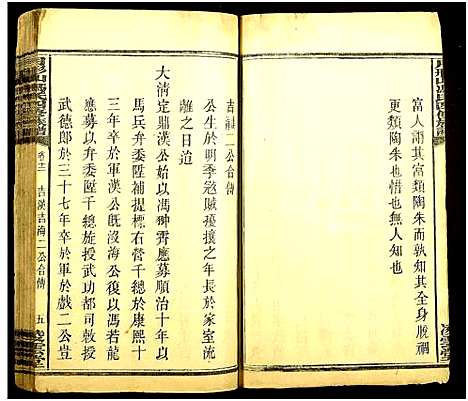 富人謂其富類陶朱而孰知其全身脫禍
更類陶朱也惜也無人知也
吉漢二公合傳
公生於明季慾賊擾攘之年長於家室流
離之日迨
大清定鼎漢公始以馮翀霄應募順治十年以
馬兵弁委陞補提標右營千總於康熙十
三年卒於軍漢公既沒海公復以馮若龍
應募以弁委陞千總旋授武功都司敕授
武德郎於三十七年卒於軍於戲二公豈
卷十二
吉漢吉海二公合傳
五
凌雲堂